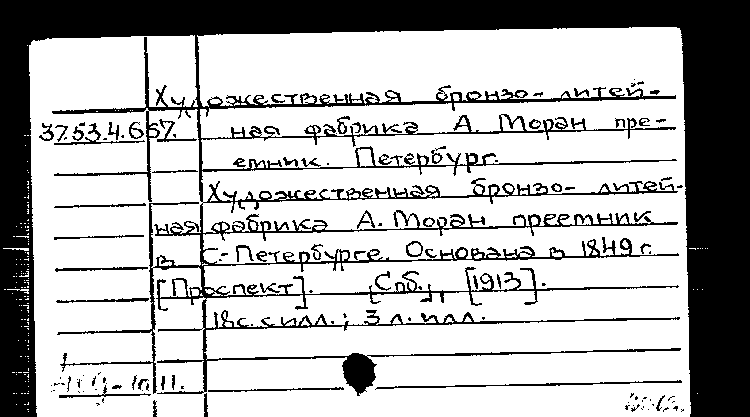 Художественная бронзо-литей-
37.53.4.657. ная фабрика А. Моран пре-
емник. Петербург.
Художественная бронзо-литей-
ная фабрика А. Моран преемник
в С-Петербурге. Основана в 1849 г.
[Проспект]. [Спб.], [1913].
18 с. с илл.; 3 л. илл.